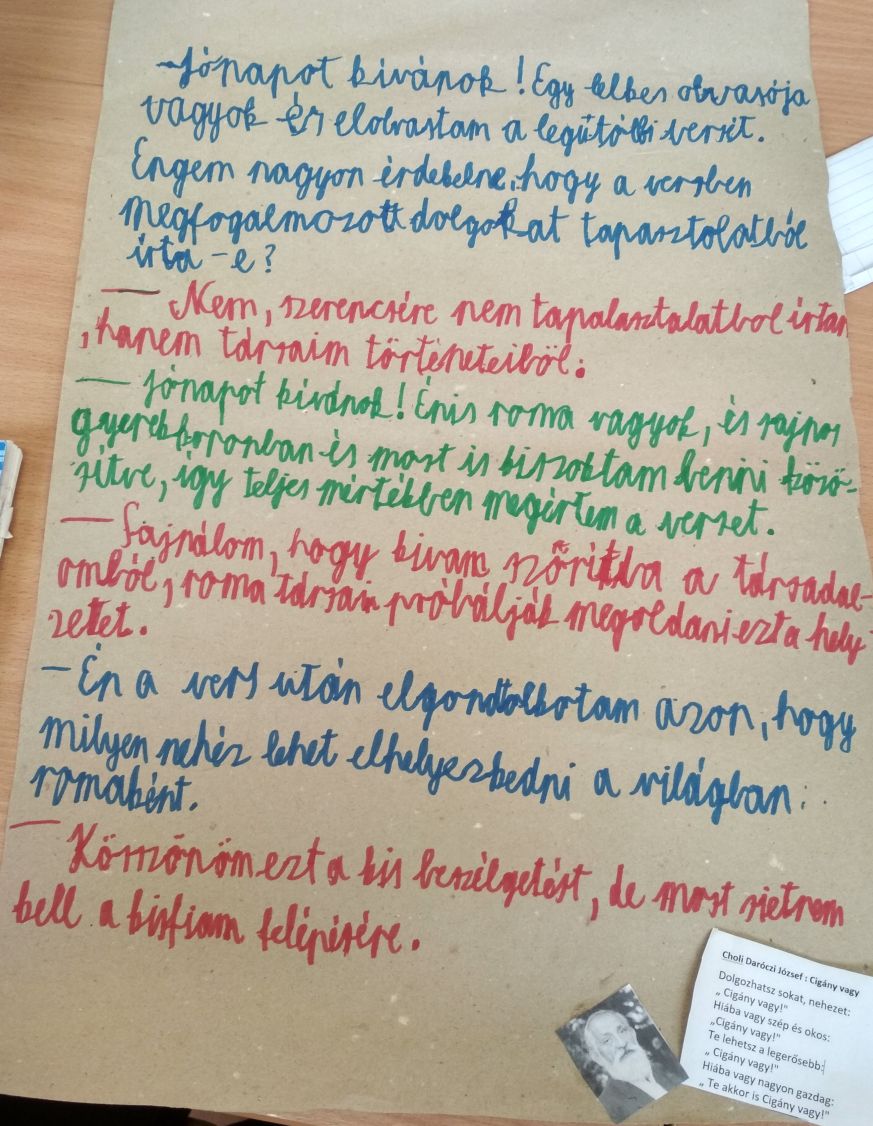 - Jónapot kivánok! Egy lelkes olvasója
vagyok és elolvastam a legűtóbbi versét.
Engem nagyon érdekelne, hogy a versben
megfogalmozott dolgokat tapasztolatból
írta-e?
- Nem, szerencsére nem tapalasztalatbol írtam
, hanem társaim történeteiből.
- Jónapot kívánok! Énis roma vagyok, és sajnos
gyerekkoromban és most is kiszoktam lenni közö-
sítve, így teljes mértékben megértem a verset.
- Sajnálom, hogy kivam szőrítva a társadal-
omból, roma társaim próbálják megoldani ezt a hely-
zetet.
- Én a vers után elgondolkotam azon, hogy
milyen nehéz lehet elhelyezkedni a világban
romaként.
- Köszönöm ezt a kis beszélgetést, de most sietnem
kell a kisfiam felépésére.
Choli Daróczi József : Cigány vagy
Dolgozhatsz sokat, nehezet:
„ Cigány vagy!"
Hiába vagy szép és okos:
„Cigány vagy!"
Te lehetsz a legerősebb:
„ Cigány vagy!"
Hiába vagy nagyon gazdag:
„ Te akkor is Cigány vagy!"